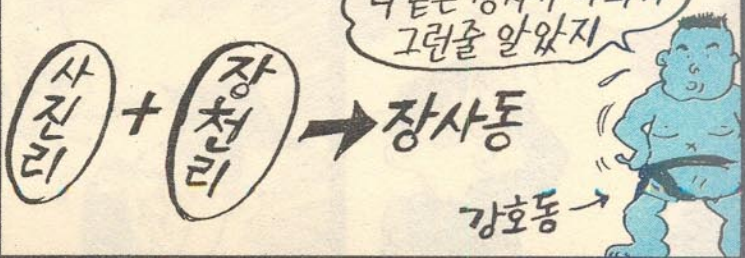 그런줄 알았지
사진리 + 장천리 → 장사동
강호동 →